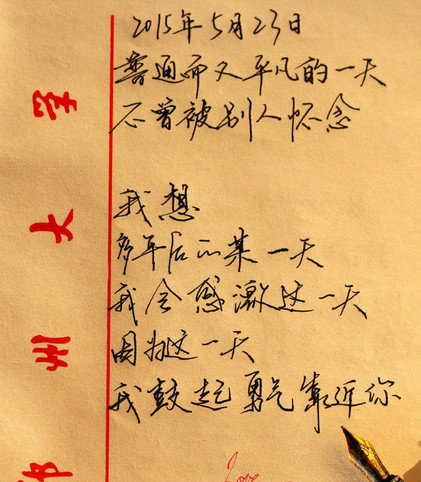 2015年5月23日
普通而又平凡的一天
不曾被别人怀念
我想
多年后的某一天
我会感激这一天
因为这一天
我鼓起勇气靠近你
郑州大学
Love